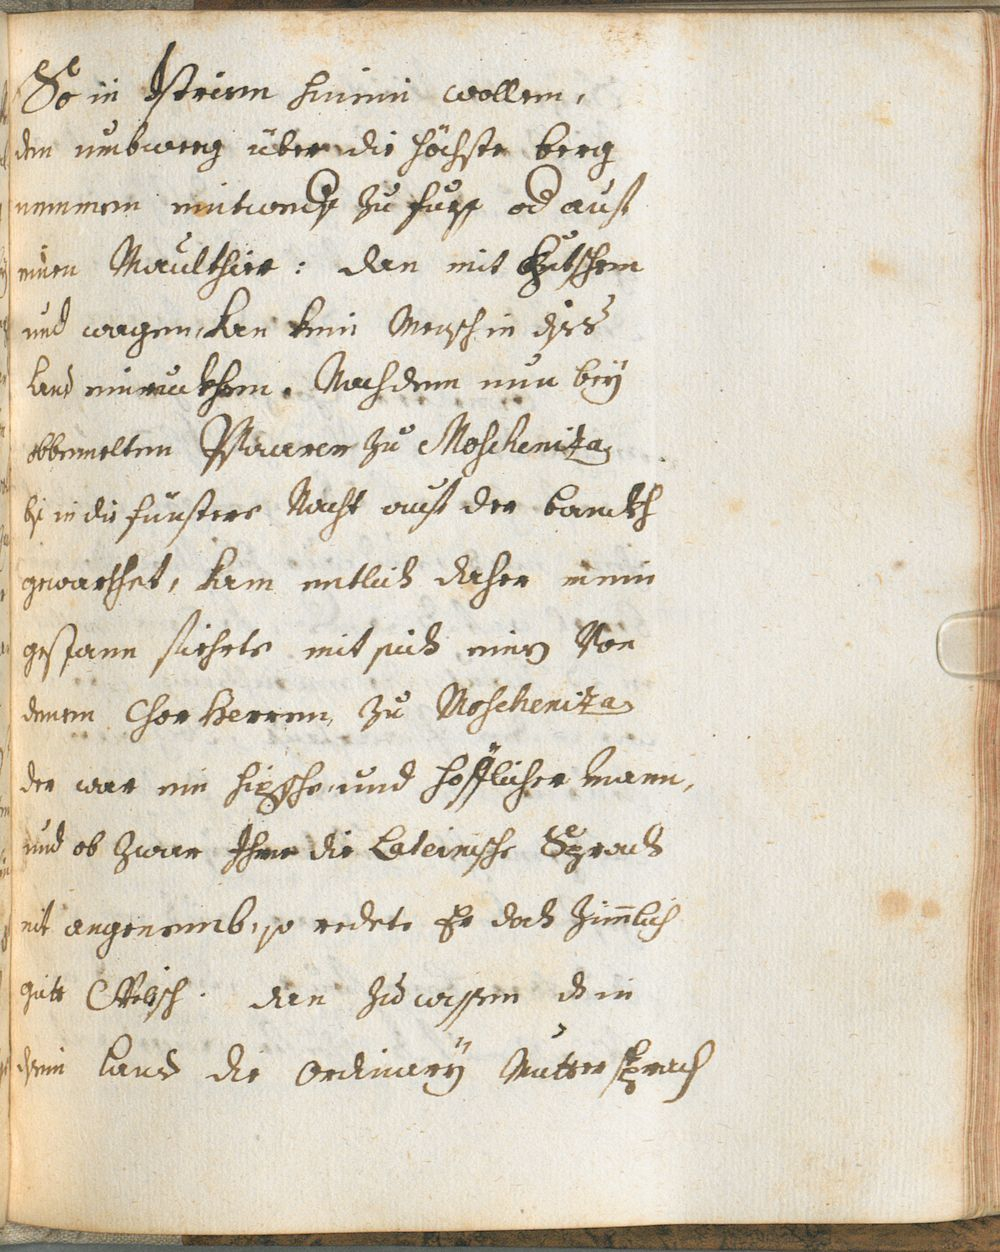 So in Istrien hinein wollen,
den umbweeg über die höchste berg
nemmen eintweders zu fuess od auf
einen Maulthier: dan mit Gutschen
und wagen, kan kein Mensch in diss
Land einruckhen. Nachdem nun bey
obbemelten Pfarrer zu Moschenitza
bis in die finstere Nacht auf der banckh
gewarthet, kam entlich daher mein
gespann fiehrte mit sich einen Von
denen Chor Herren, zu Moschenitza
der war ein hipscher und höfflicher Mann,
und ob zwar Ihme die Lateinische Sprach
nit angenemb, so redete Er doch zimlich
gutt Welsch. dan zu wissen dz in
disem Land die ordinary Mutter sprach